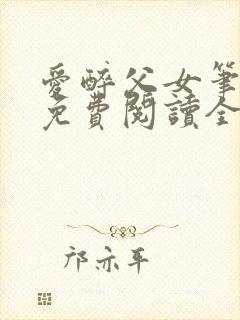 愛醉父女筆
免費閱讀全
邝亦平